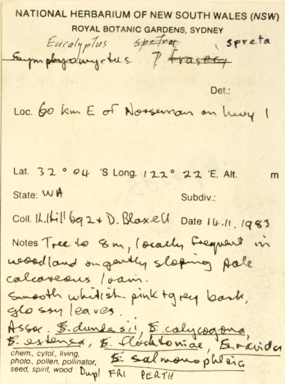 NATIONAL HERBARIUM OF NEW SOUTH WALES (NSW)
ROYAL BOTANIC GARDENS, SYDNEY
Eucalyptus spreta
Symphyomyrtus ?
Det.:
Loc. 60 km E of Norseman on hwy 1
Lat. 32° 04 'S Long. 122° 22 'E, Alt. m
State: WA Subdiv.:
Coll. K. Hill 692 & D. Blaxell Date 14.11.1983
Notes Tree to 8m, locally frequent in
woodland on gently sloping pale
calcareous loam.
Smooth whitish pink & grey bark,
glossy leaves.
Assoc. E. dundasii, E. calycogona,
E. extensa, E. flocktoniae, E. ravida
E. salmonophloia
chem, cytol., living,
photo., pollen, pollinator,
seed, spirit, wood Dupl FRI PERTH